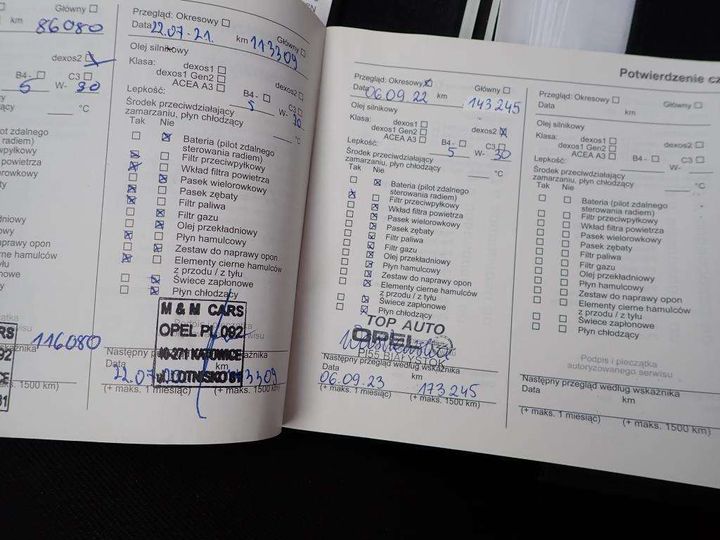 86080
km
dexos2
B4-
C3
5 W- 30
°C
zdalnego
radiem)
przeciwpyłkowy
powietrza
kładniowy
y
naprawy opon
ne hamulców
rzodu / z tyłu
116080
1500 km)
Przegląd: Okresowy
Główny
Data 22.07.21. km 113309
Olej silnikowy
Klasa:
dexos1
dexos2
dexos1 Gen2
ACEA A3
B4-
C3
Lepkość: 5 W- 30
Środek przeciwdziałający
zamarzaniu, płyn chłodzący
°C
Tak Nie
Bateria (pilot zdalnego
sterowania radiem)
Filtr przeciwpyłkowy
Wkład filtra powietrza
Pasek wielorowkowy
Pasek zębaty
Filtr paliwa
Filtr gazu
Olej przekładniowy
Płyn hamulcowy
Zestaw do naprawy opon
Elementy cierne hamulców
z przodu / z tyłu
Świece zapłonowe
Płyn chłodzący
M & M CARS
OPEL PL092
40-271 KATOWICE
ul. LOTNISKO 81
Następny przegląd według wskaźnika
Data km
(+ maks. 1 miesiąc) (+ maks. 1500 km)
Przegląd: Okresowy
Główny
Data 06.09.22 km 143245
Olej silnikowy
Klasa:
dexos1
dexos2
dexos1 Gen2
ACEA A3
B4-
C3
Lepkość: 5 W- 30
Środek przeciwdziałający
zamarzaniu, płyn chłodzący
°C
Tak Nie
Bateria (pilot zdalnego
sterowania radiem)
Filtr przeciwpyłkowy
Wkład filtra powietrza
Pasek wielorowkowy
Pasek zębaty
Filtr paliwa
Filtr gazu
Olej przekładniowy
Płyn hamulcowy
Zestaw do naprawy opon
Elementy cierne hamulców
z przodu / z tyłu
Świece zapłonowe
Płyn chłodzący
TOP AUTO
OPEL
PL55 BIAŁYSTOK
Następny przegląd według wskaźnika
Data km
06.09.23 173245
(+ maks. 1 miesiąc) (+ maks. 1500 km)
Potwierdzenie
Przegląd: Okresowy
Główny
Data km
Olej silnikowy
Klasa:
dexos1
dexos2
dexos1 Gen2
ACEA A3
B4-
C3
Lepkość: W-
Środek przeciwdziałający
zamarzaniu, płyn chłodzący
°C
Tak Nie
Bateria (pilot zdalnego
sterowania radiem)
Filtr przeciwpyłkowy
Wkład filtra powietrza
Pasek wielorowkowy
Pasek zębaty
Filtr paliwa
Filtr gazu
Olej przekładniowy
Płyn hamulcowy
Zestaw do naprawy opon
Elementy cierne hamulców
z przodu / z tyłu
Świece zapłonowe
Płyn chłodzący
Podpis i pieczątka
autoryzowanego serwisu
Następny przegląd według wskaźnika
Data km
(+ maks. 1 miesiąc) (+ maks. 1500 km)